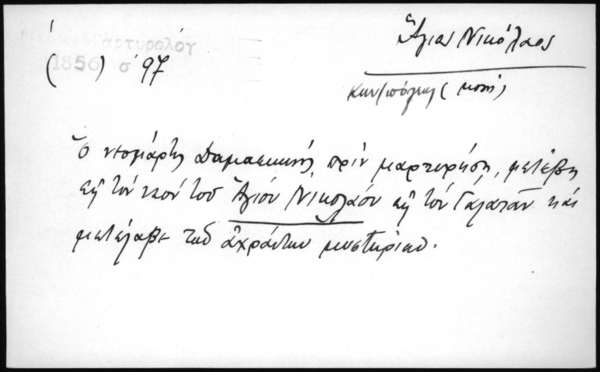 Νέον Μαρτυρολόγ
(1856) σ 97
Ἅγιος Νικόλαος
Κων/πόλεως (μονή)
Ὁ νεομάρτυς Δαμασκηνός, πρὶν μαρτυρήσῃ, μετέβη
εἰς τὸν ναὸν τοῦ Ἁγίου Νικολάου εἰς τὸν Γαλατᾶν καὶ
μετέλαβε τῶν ἀχράντων μυστηρίων.